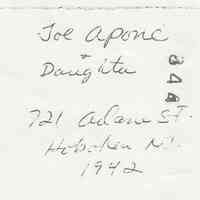 Joe Aponc
+
Daughter
721 Adam St.
Hoboken N.J.
1942